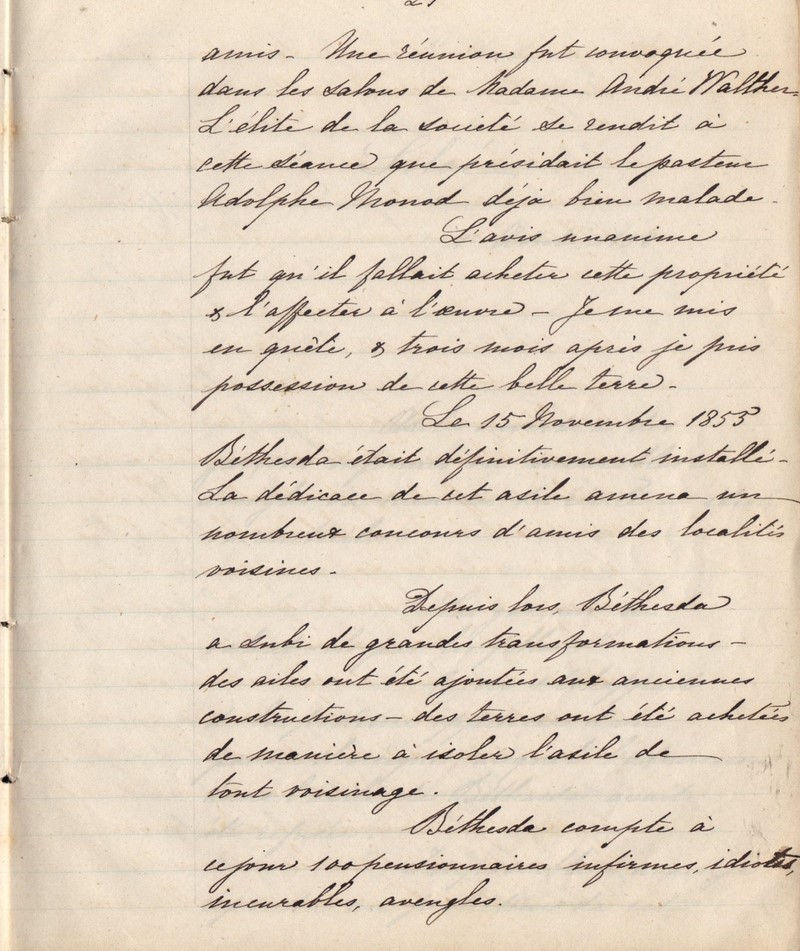 amis - Une réunion fut convoquée
dans les salons de Madame André Walther -
L'élite de la société se rendit à
cette séance que présidait le pasteur
Adolphe Monod déjà bien malade -
L'avis unanime
fut qu'il fallait acheter cette propriété
& l'affecter à l'œuvre - Je me mis
en quête, & trois mois après je pris
possession de cette belle terre -
Le 15 Novembre 1855
Béthesda était définitivement installé -
La dédicace de cet asile amena un
nombreux concours d'amis des localités
voisines -
Depuis lors, Béthesda
a subi de grandes transformations -
des ailes ont été ajoutées aux anciennes
constructions - des terres ont été achetées
de manière à isoler l'asile de
tout voisinage.
Béthesda compte à
ce jour 100 pensionnaires infirmes, idiotes,
incurables, aveugles.